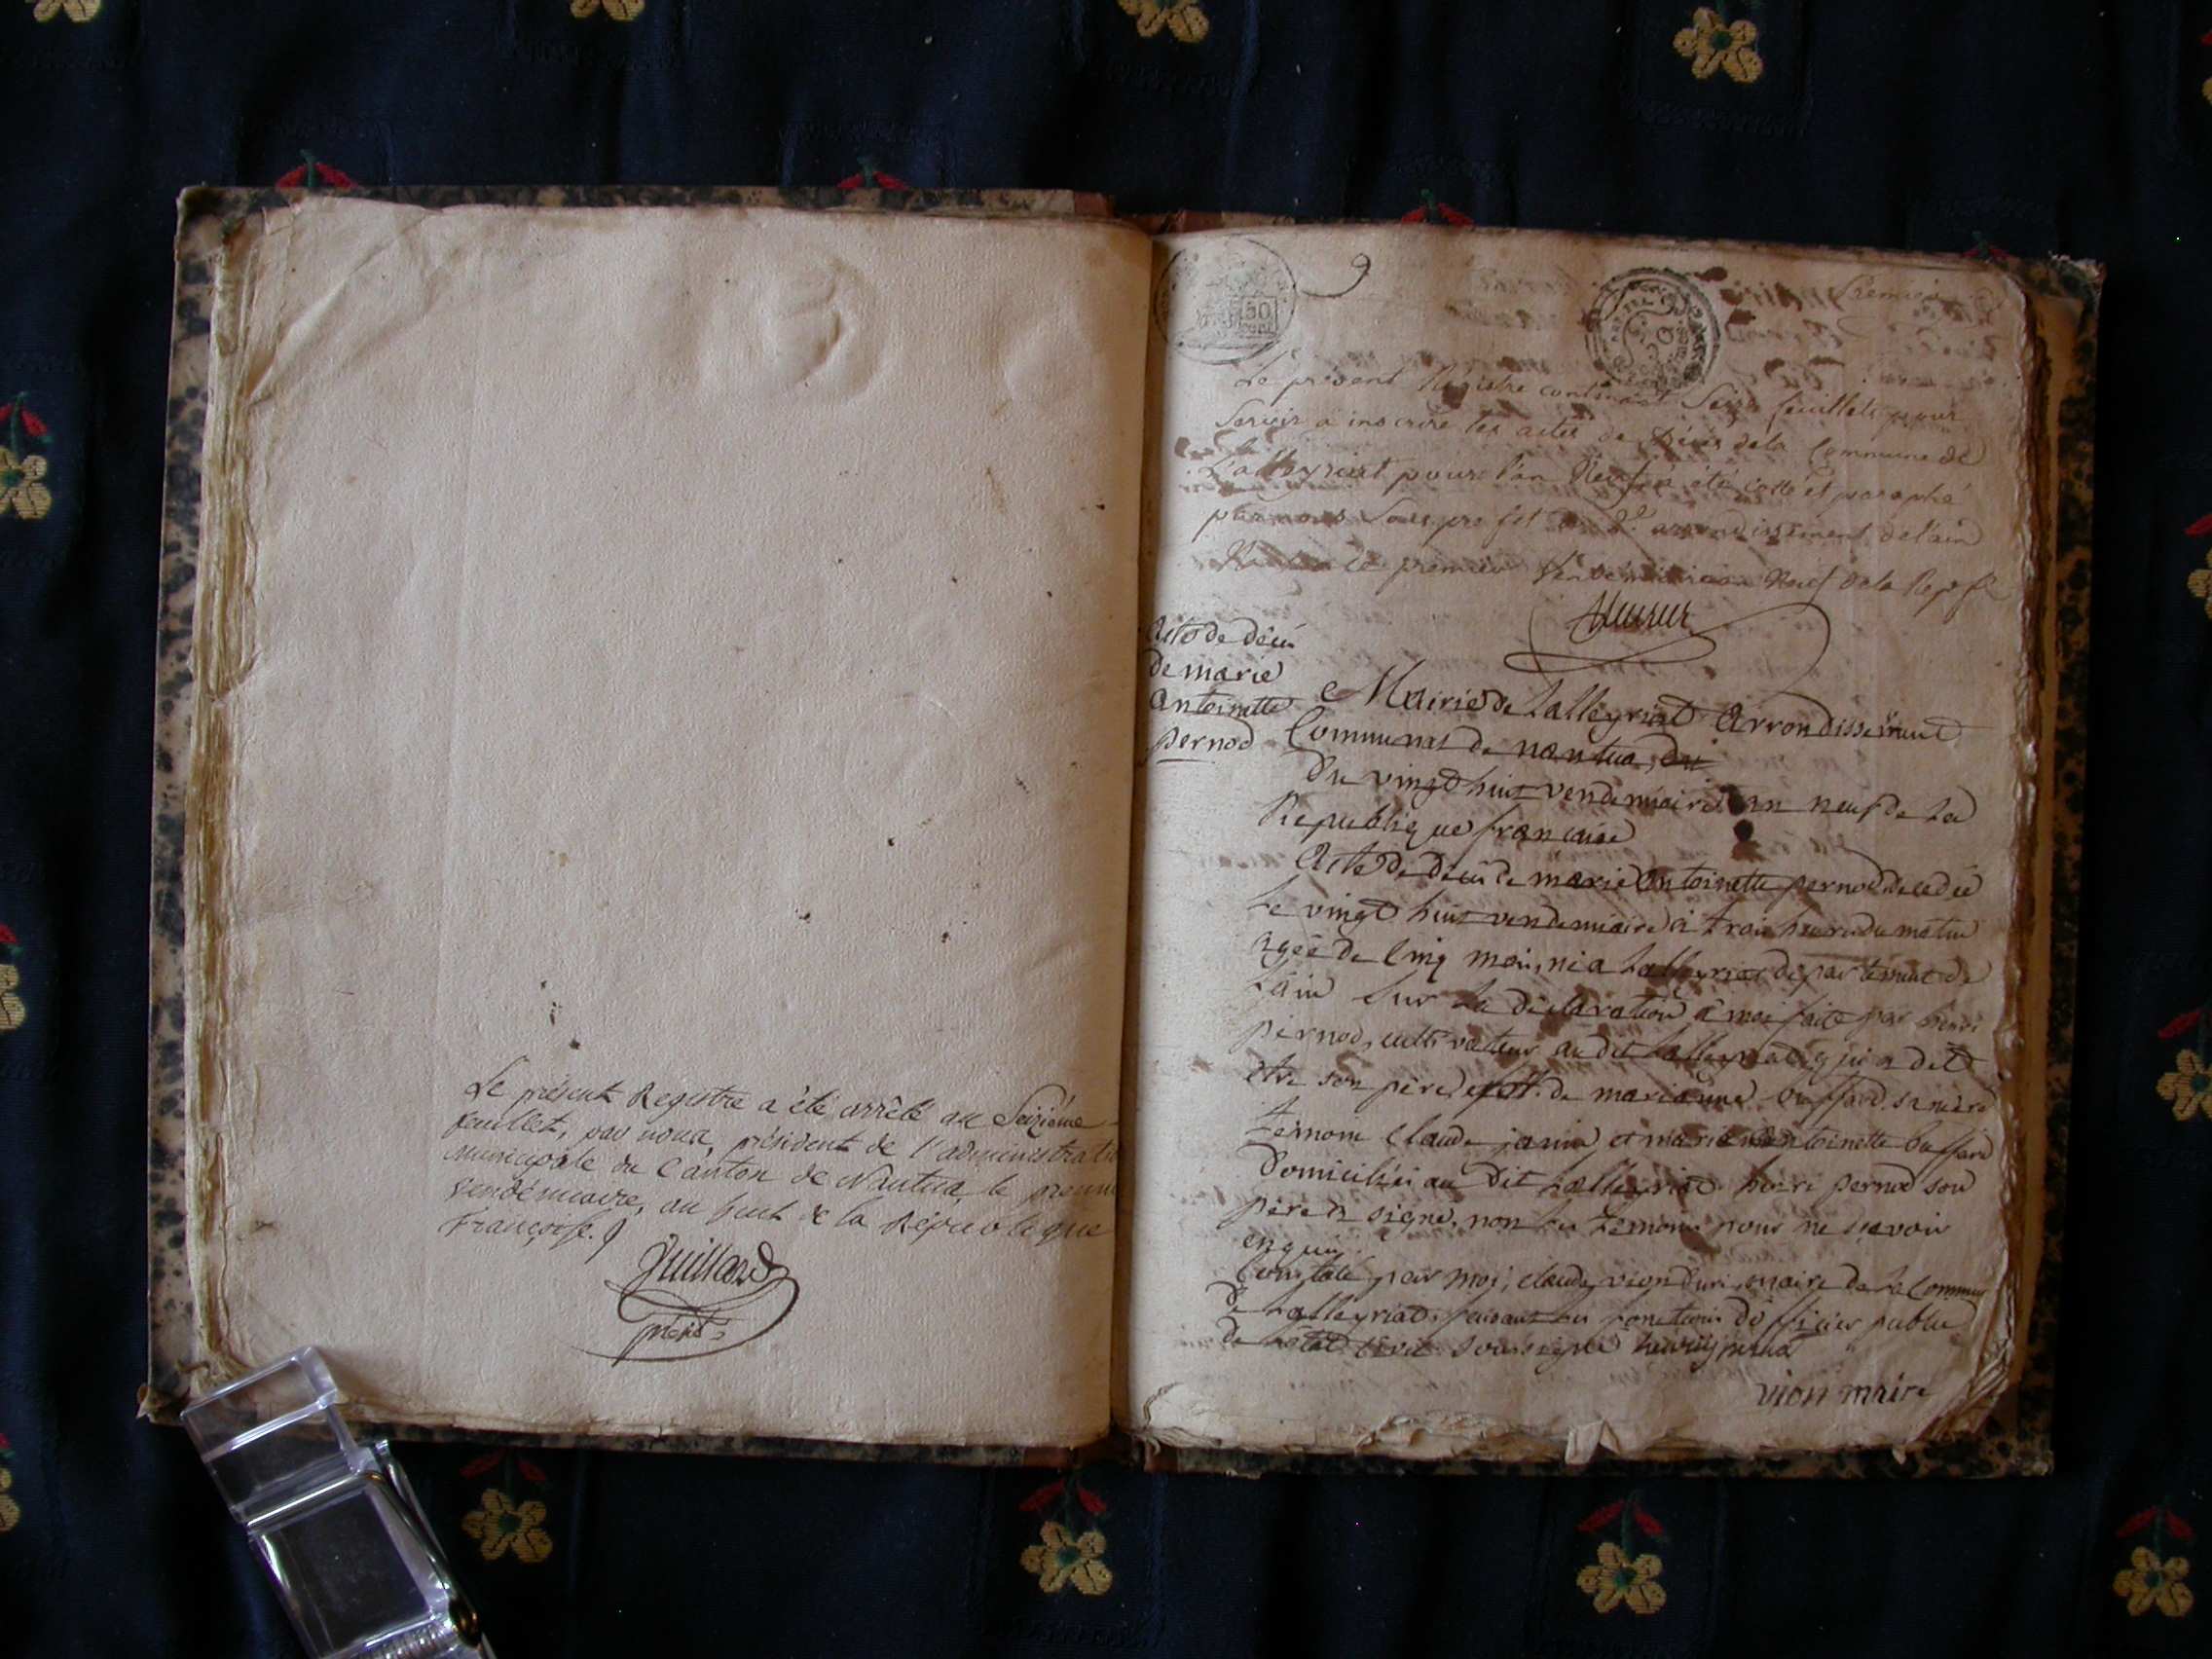 Le présent Registre a été arrêté au Seizième
feuillet, par nous président de l'administrati
municipale du Canton de Nantua, le premi
vendémiaire, an huit de la République
françoise.
Juillard
présid
50
cent
9
Premier
Le présent Registre contenant Seize feuillets pour
Servir a inscrire les actes de décès de la Commune de
Lalleyriat pour l'an Neuf a été cotté et paraphé
par nous Sous prefet du 2e arrondissement de l'ain
le premier Vendemiaire an Neuf de la Rep. fse
Acte de décü
de marie
Antoinette
pernod
Mairie de Lalleyriat Arrondissement
Communal de nantua,
Du vingt huit vendemiaire an neuf de La
Republique francaise
Acte de décü de marie Antoinette pernod decedée
Le vingt huit vendemiaire a trois heure du matin
agée de Cinq mois, née a Lalleyriat departement de
L'ain Sur La déclaration a moi faite par henri
pernod, cultivateur au dit Lalleyriat qui a dit
etre son père, et de marianne buffard. sa mère
temoins Claude janin et marie antoinette buffard
Domiciliés au Dit Lalleyriat. henri pernod son
père a signé, non les temoins pour ne scavoir
enquis.
Constaté par moi, claude vion maire de La Commune
de Lalleyriat, faisant les fonctions d'officier public
de L'état Civil soussigné henry pernod
vion maire